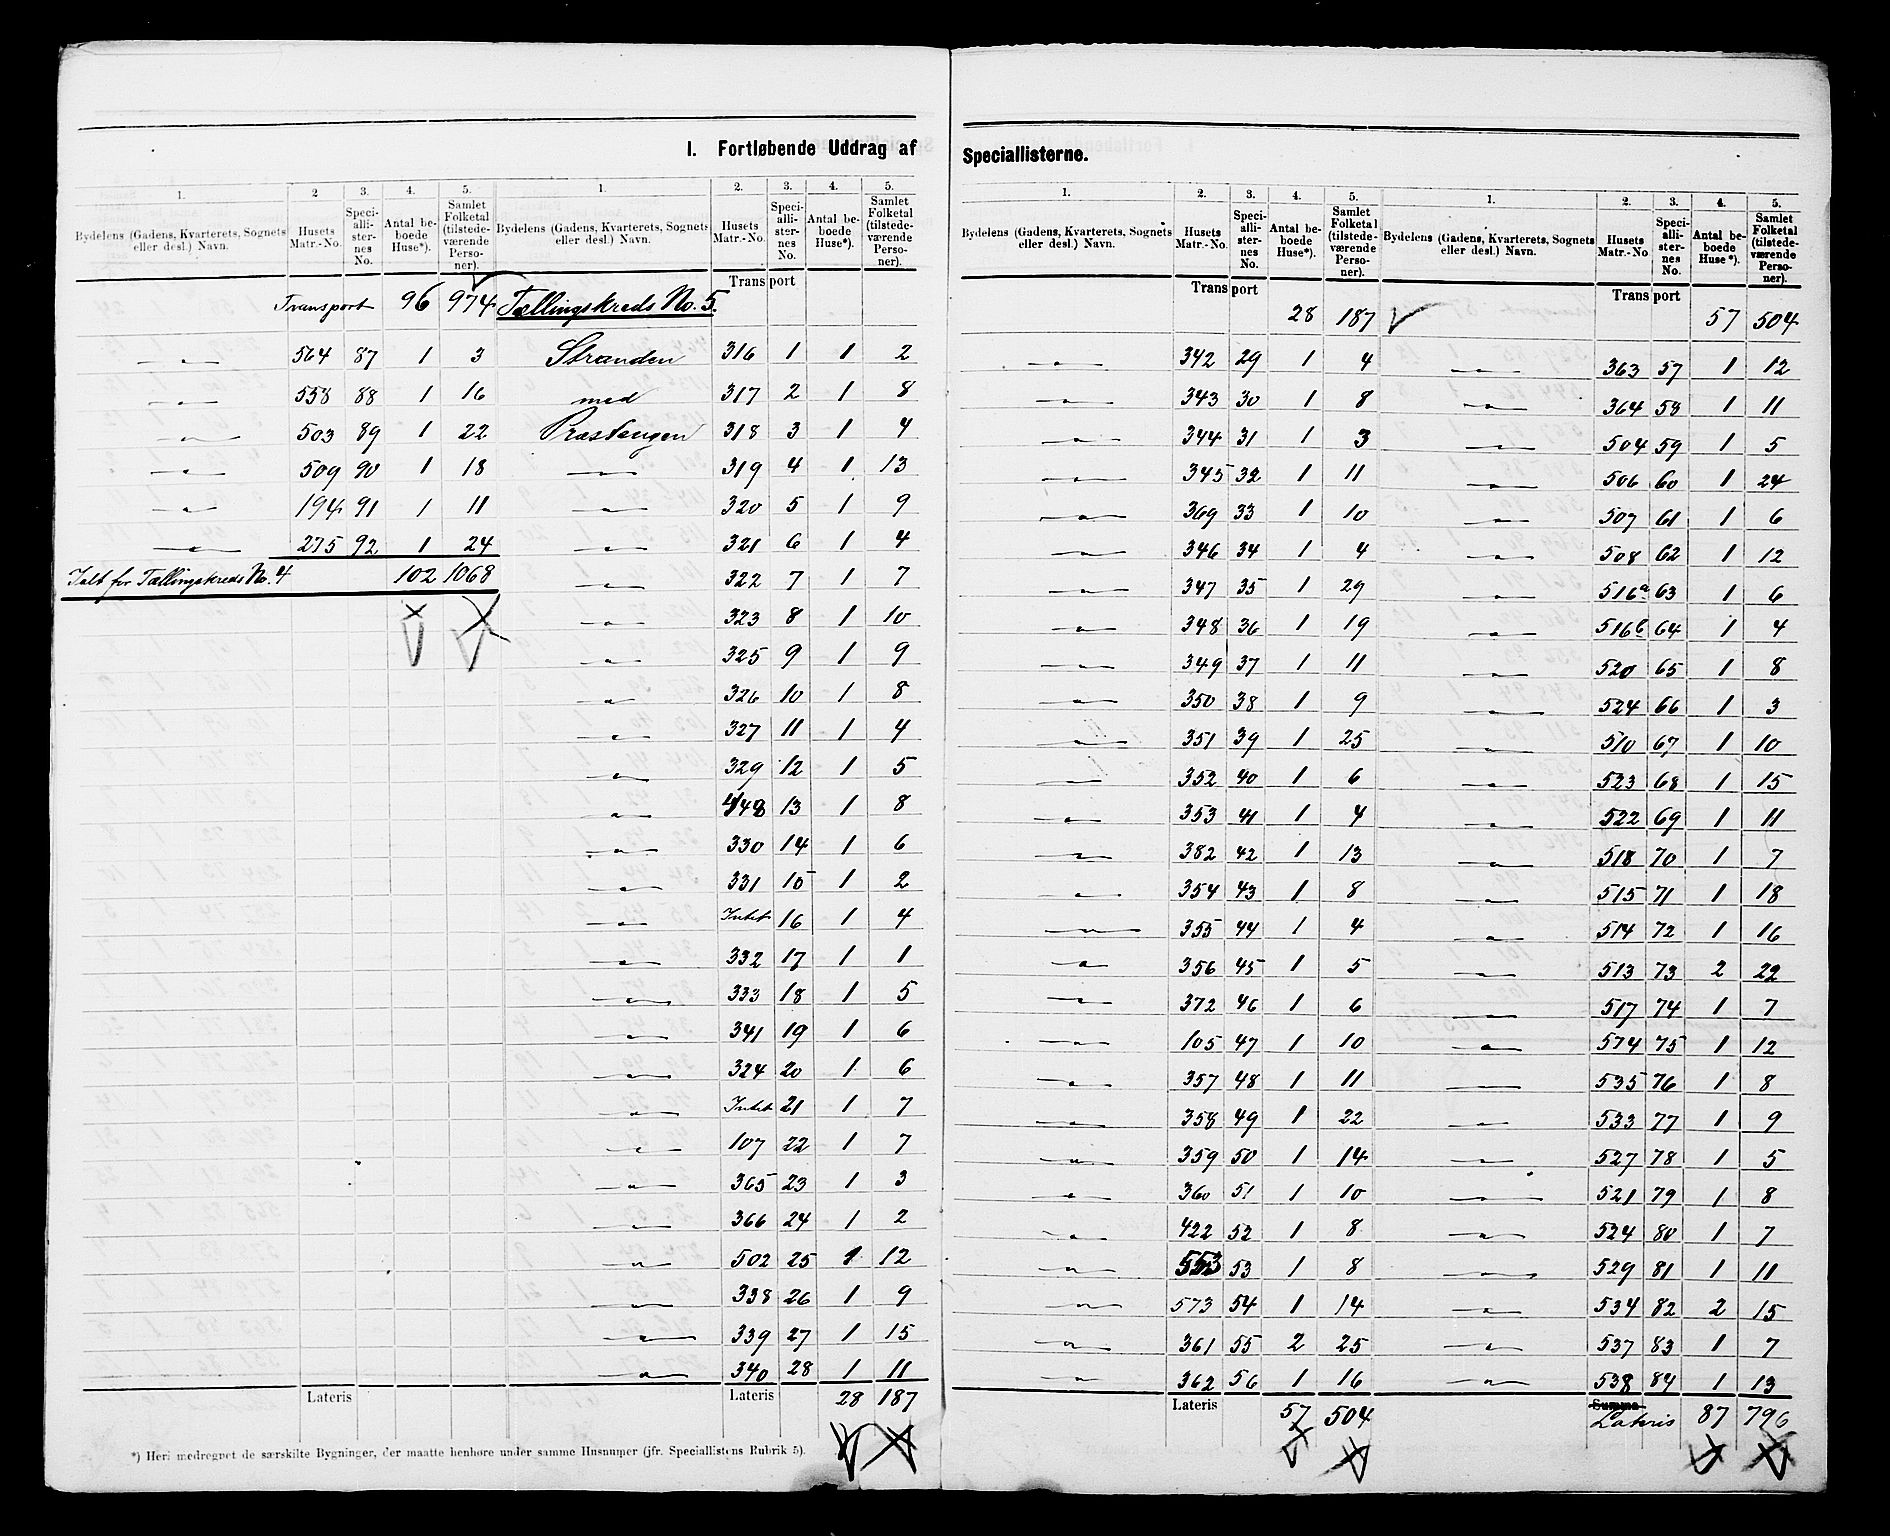 I. Fortløbende Uddrag af Speciallisterne.
1. 2 3. 4. 5. 1. 2. 3. 4. 5.
Bydelens (Gadens, Kvarterets, Sognets eller desl.) Navn. Husets Matr.-No. Speciallisternes No. Antal beboede Huse*). Samlet Folketal (tilstedeværende Personer). Bydelens (Gadens, Kvarterets, Sognets eller desl.) Navn. Husets Matr.-No. Speciallisternes No. Antal beboede Huse*). Samlet Folketal (tilstedeværende Personer).
Transport 96 974
— 564 87 1 3
— 558 88 1 16
— 503 89 1 22
— 509 90 1 18
— 194 91 1 11
— 275 92 1 24
Ialt for Tællingskreds No. 4 102 1068
Transport
Tællingskreds No. 5.
Stranden 316 1 1 2
med 317 2 1 8
Præstangen 318 3 1 4
— 319 4 1 13
— 320 5 1 9
— 321 6 1 4
— 322 7 1 7
— 323 8 1 10
— 325 9 1 9
— 326 10 1 8
— 327 11 1 4
— 329 12 1 5
— 448 13 1 8
— 330 14 1 6
— 331 15 1 2
— Intet 16 1 4
— 332 17 1 1
— 333 18 1 5
— 341 19 1 6
— 324 20 1 6
— Intet 21 1 7
— 107 22 1 7
— 365 23 1 3
— 366 24 1 2
— 502 25 1 12
— 338 26 1 9
— 339 27 1 15
— 340 28 1 11
Lateris
Lateris 28 187
*) Heri medregnet de særskilte Bygninger, der maatte henhøre under samme Husnumer (jfr. Speciallistens Rubrik 5).
1. 2. 3. 4. 5. 1. 2. 3. 4. 5.
Bydelens (Gadens, Kvarterets, Sognets eller desl.) Navn. Husets Matr.-No. Speciallisternes No. Antal beboede Huse*). Samlet Folketal (tilstedeværende Personer). Bydelens (Gadens, Kvarterets, Sognets eller desl.) Navn. Husets Matr.-No Speciallisternes No. Antal beboede Huse*). Samlet Folketal (tilstedeværende Personer).
Transport 28 187
— 342 29 1 4
— 343 30 1 8
— 344 31 1 3
— 345 32 1 11
— 369 33 1 10
— 346 34 1 4
— 347 35 1 29
— 348 36 1 19
— 349 37 1 11
— 350 38 1 9
— 351 39 1 25
— 352 40 1 6
— 353 41 1 4
— 382 42 1 13
— 354 43 1 8
— 355 44 1 4
— 356 45 1 5
— 372 46 1 6
— 105 47 1 10
— 357 48 1 11
— 358 49 1 22
— 359 50 1 14
— 360 51 1 10
— 422 52 1 8
— 553 53 1 8
— 573 54 1 14
— 361 55 2 25
— 362 56 1 16
Lateris 57 504
Transport 57 504
— 363 57 1 12
— 364 58 1 11
— 504 59 1 5
— 506 60 1 24
— 507 61 1 6
— 508 62 1 12
— 516a 63 1 6
— 516b 64 1 4
— 520 65 1 8
— 524 66 1 3
— 510 67 1 10
— 523 68 1 15
— 522 69 1 11
— 518 70 1 7
— 515 71 1 18
— 514 72 1 16
— 513 73 2 22
— 517 74 1 7
— 574 75 1 12
— 535 76 1 8
— 533 77 1 9
— 527 78 1 5
— 521 79 1 8
— 524 80 1 7
— 529 81 1 11
— 534 82 2 15
— 537 83 1 7
— 538 84 1 13
Summa
Lateris 87 796